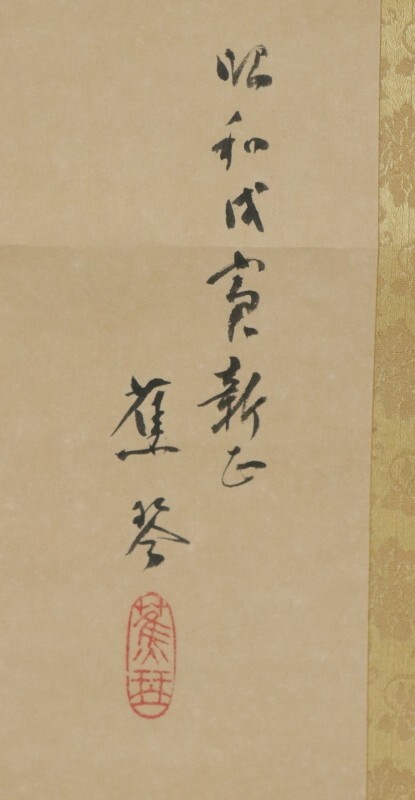 昭和戊寅新正
蕉琴
蕉琴